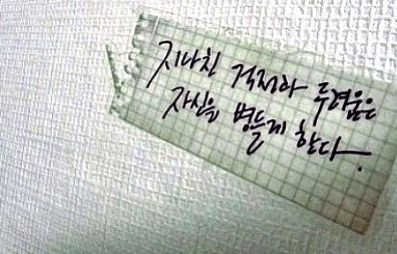 지나친 걱정과 두려움은
자신을 병들게 한다.